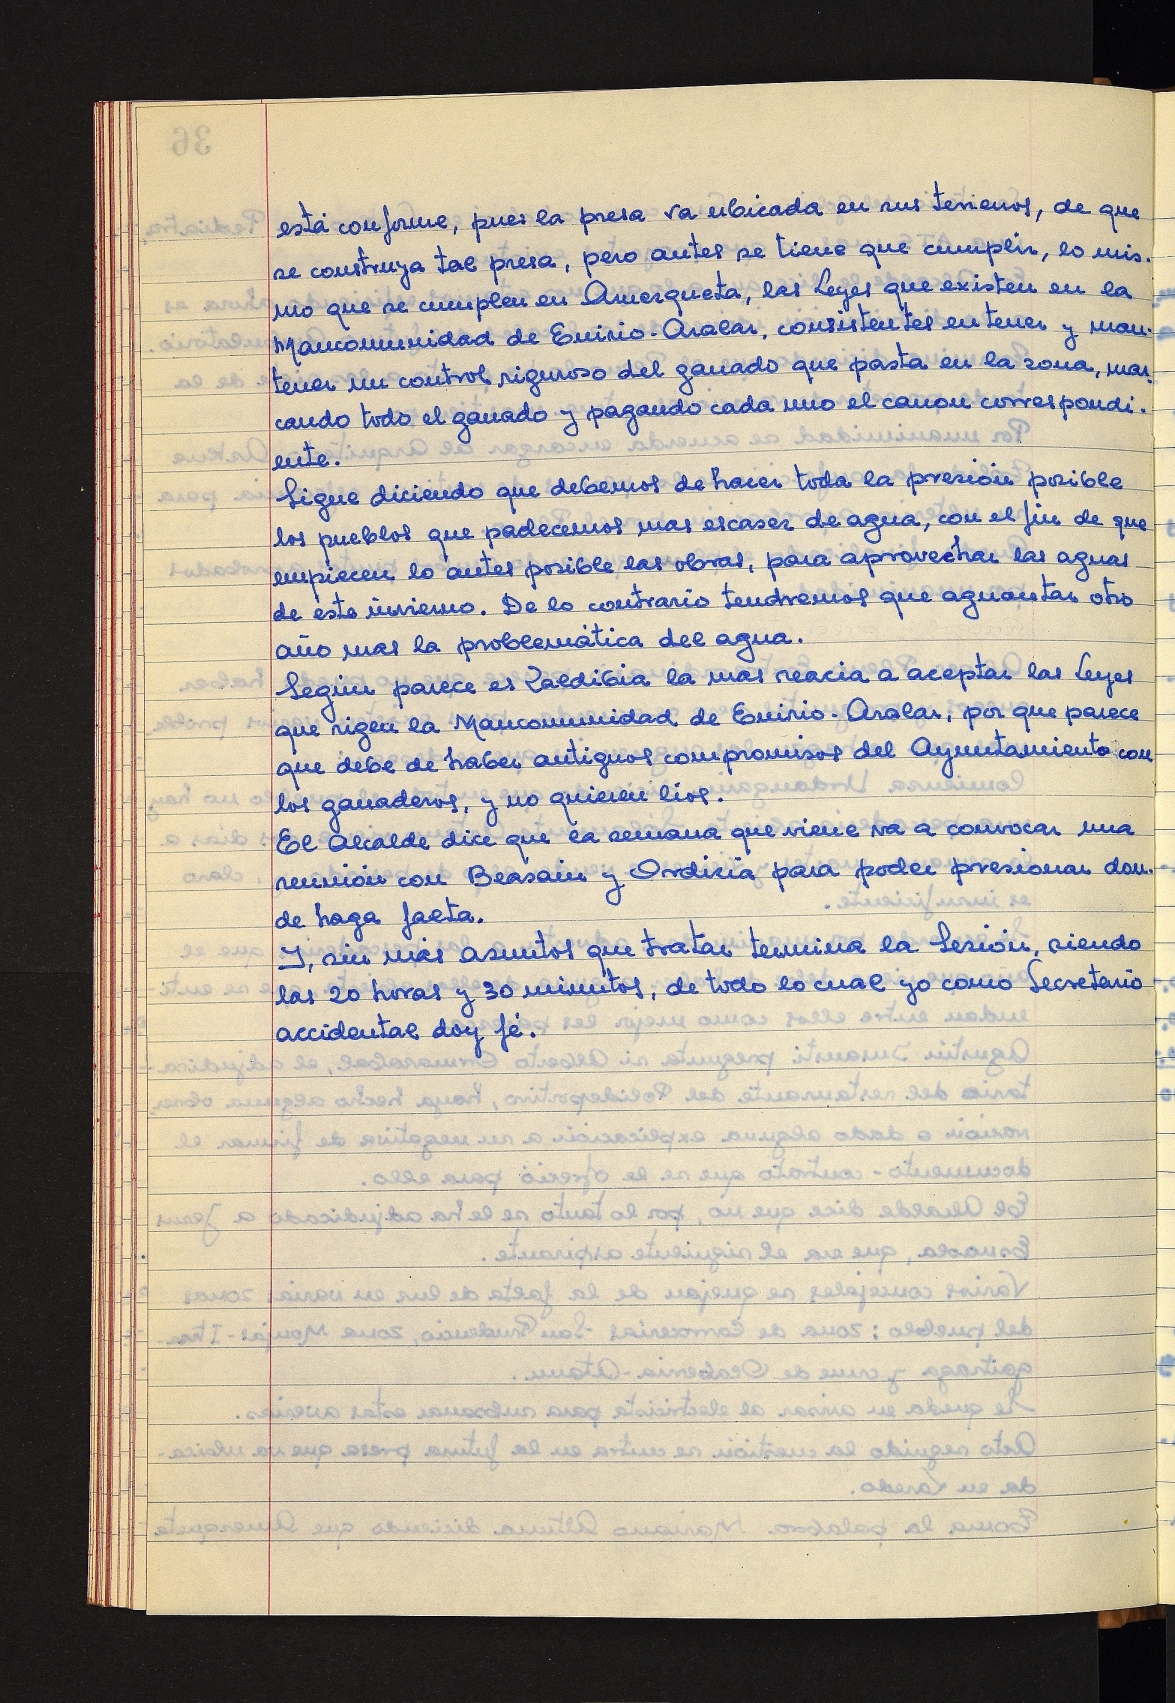 está conforme, pues la presa va ubicada en sus terrenos, de que
se construya tal presa, pero antes se tiene que cumplir, lo mis-
mo que se cumplen en Amezqueta, las Leyes que existen en la
Mancomunidad de Enirio-Aralar, consistentes en tener y man-
tener un control riguroso del ganado que pasta en la zona, mar
cando todo el ganado y pagando cada uno el canon correspondi-
ente.
Sigue diciendo que debemos de hacer toda la presión posible
los pueblos que padecemos mas escasez de agua, con el fin de que
empiecen lo antes posible las obras, para aprovechar las aguas
de este invierno. De lo contrario tendremos que aguantar otro
año mas la problemática del agua.
Según parece es Zaldibia la mas reacia a aceptar las Leyes
que rigen la Mancomunidad de Enirio-Aralar, por que parece
que debe de haber antiguos compromisos del Ayuntamiento con
los ganaderos, y no quieren lios.
El Alcalde dice que la semana que viene va a convocar una
reunión con Beasain y Ordizia para poder presionar don-
de haga falta.
Y, sin más asuntos que tratar termina la Sesión, siendo
las 20 horas y 30 minutos, de todo lo cual yo como Secretario
accidental doy fé.